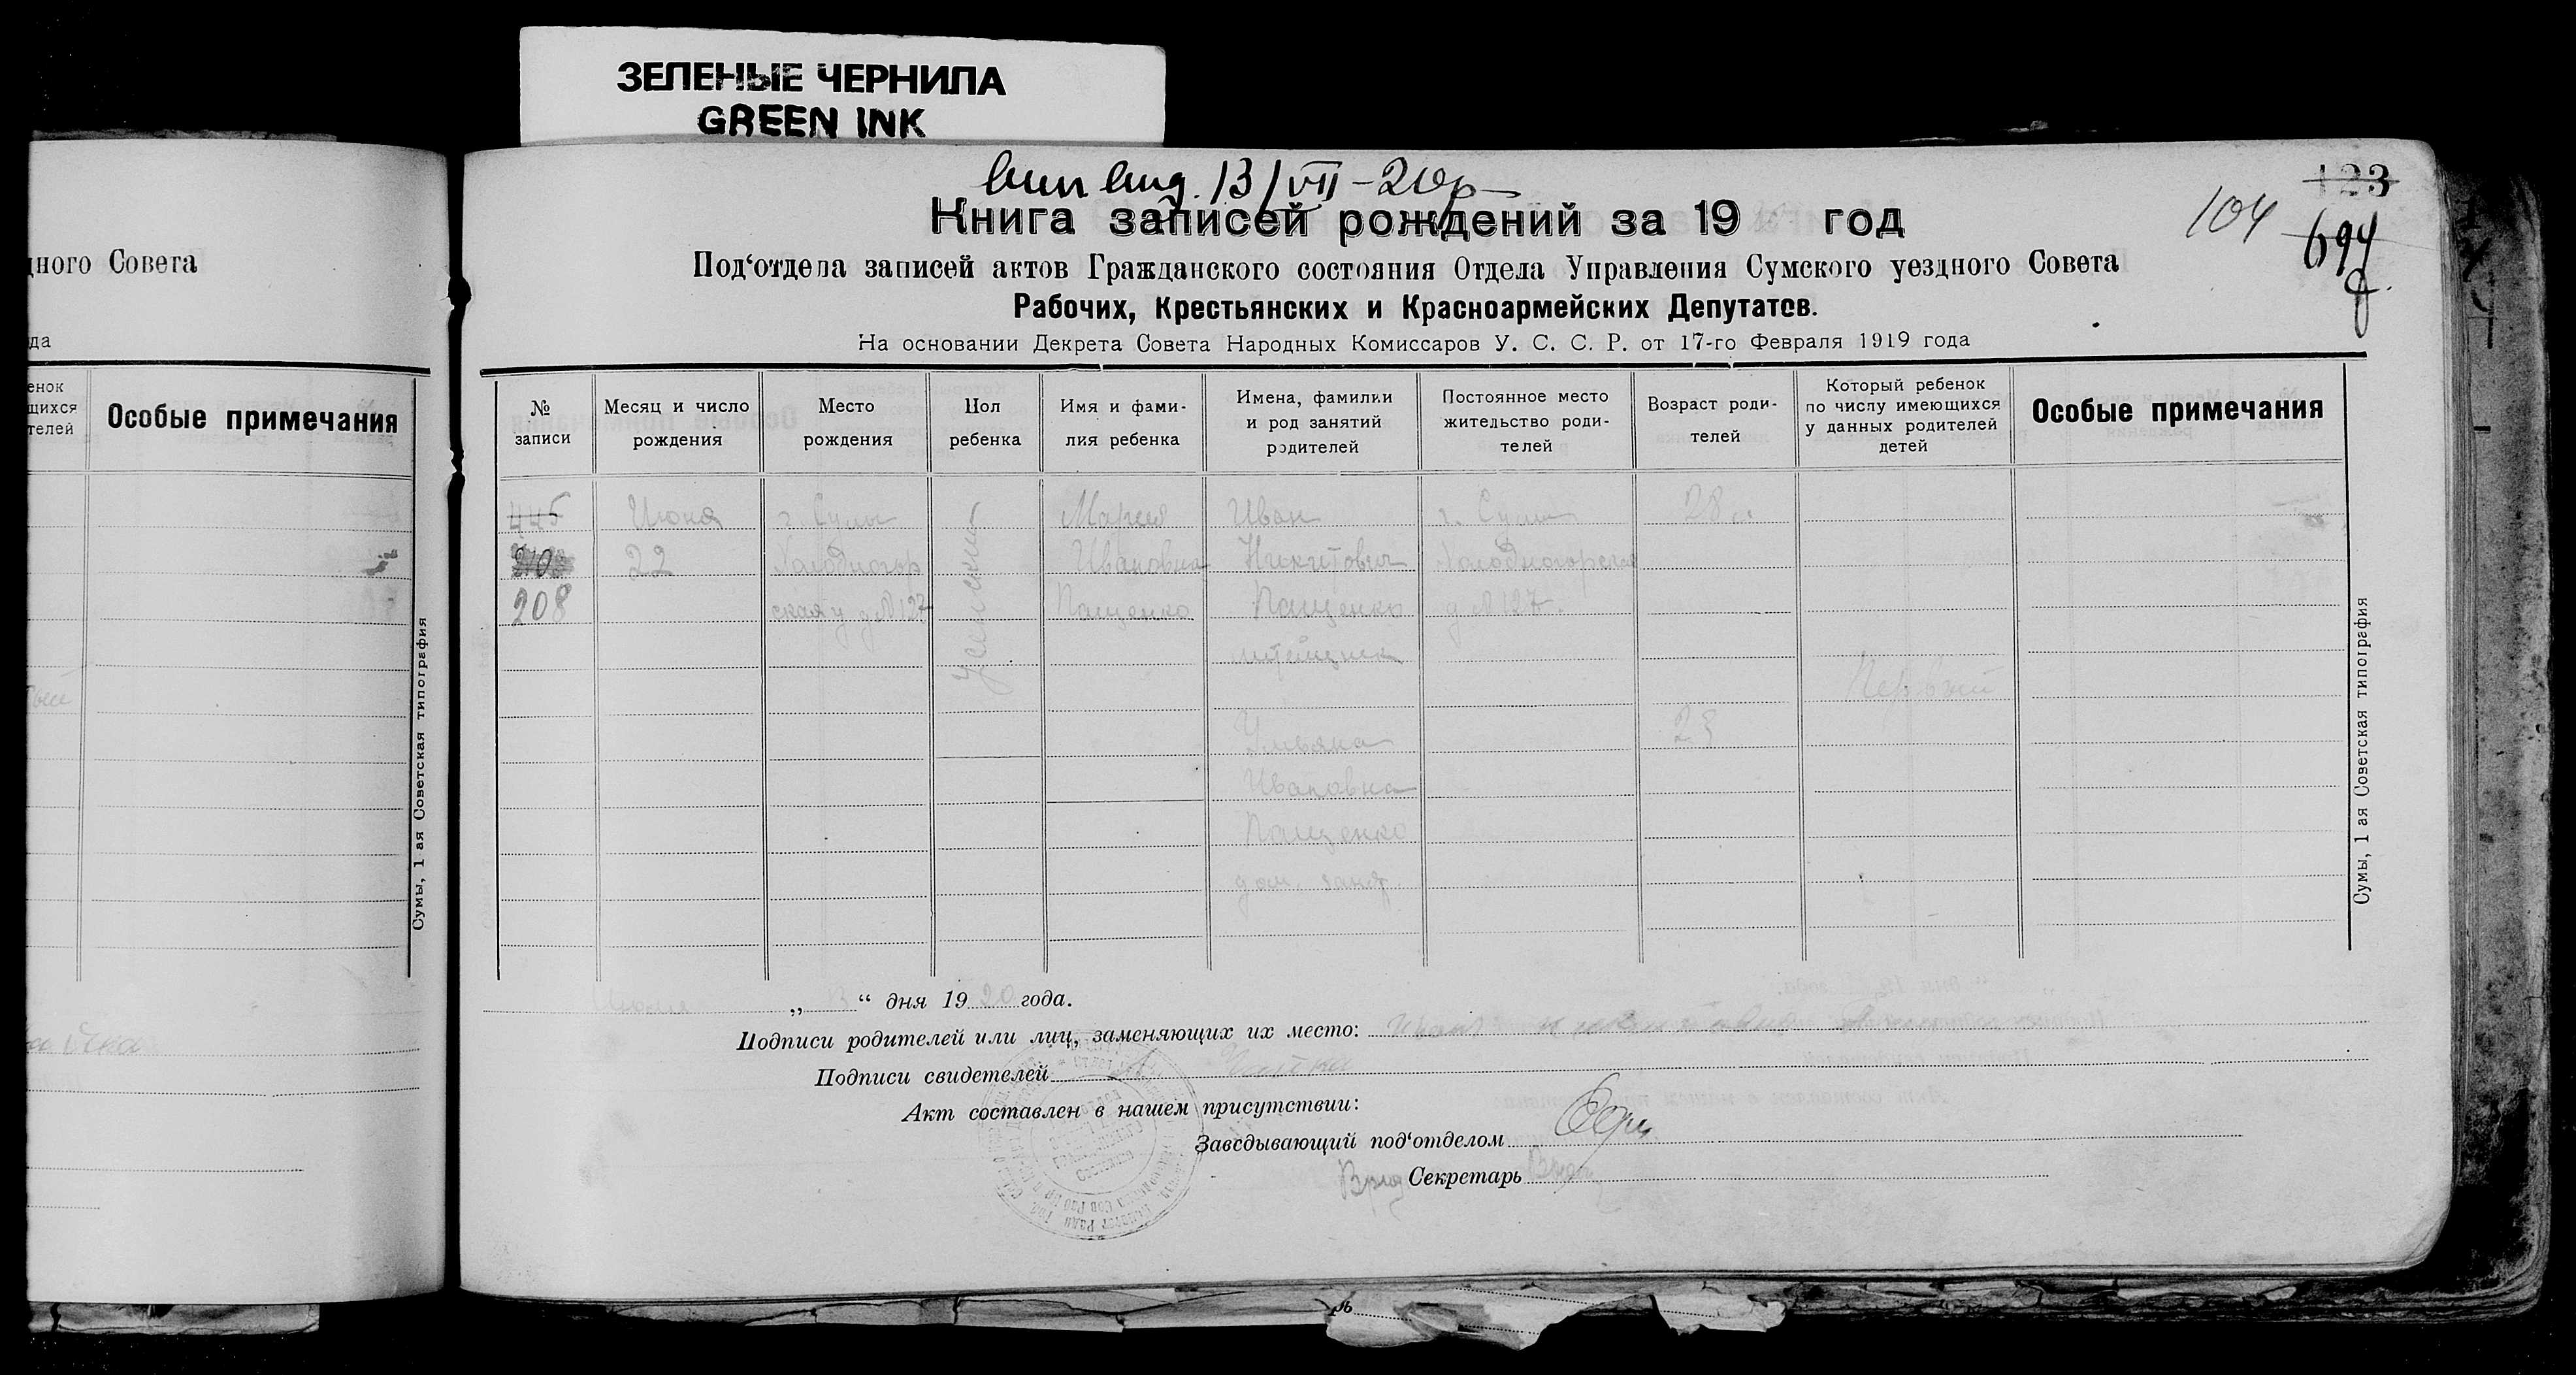 ЗЕЛЕНЫЕ ЧЕРНИЛА
GREEN INK
дного Совета
да
енок
щихся
телей
Особые примечания
Сумы, 1 ая Советская типография
13/VII-20
123
104
694
Книга записей рождений за 19 год
Под‘отдела записей актов Гражданского состояния Отдела Управления Сумского уездного Совета
Рабочих, Крестьянских и Красноармейских Депутатов.
На основании Декрета Совета Народных Комиссаров У. С. С. Р. от 17-го Февраля 1919 года
№
записи
Месяц и число
рождения
Место
рождения
Пол
ребенка
Имя и фами-
лия ребенка
Имена, фамилии
и род занятий
родителей
Постоянное место
жительство роди-
телей
Возраст роди-
телей
Который ребенок
по числу имеющихся
у данных родителей
детей
Особые примечания
445
208
Июня
22
г. Сумы
Холодногор
ская у д №127
женский
Мария
Ивановна
Пащенко
Иван
Никитович
Пащенко
Ульяна
Ивановна
Пащенко
дом. занят.
г. Сумы
Холодногорская
д №127.
28 л.
23
Первый
„13“ дня 1920 года.
Подписи родителей или лиц, заменяющих их место:
Подписи свидетелей
Акт составлен в нашем присутствии:
Заведывающий под‘отделом
Врид Секретарь
Сумы, 1 ая Советская типография